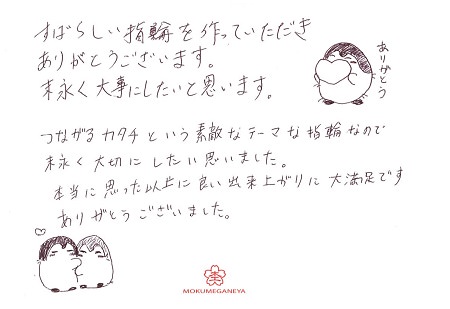 すばらしい指輪を作っていただき
ありがとうございます。
末永く大事にしたいと思います。
ありがとう
つながるカタチという素敵なテーマな指輪なので
末永く大切にしたい思いました。
本当に思った以上に良い出来上がりに大満足です
ありがとうございました。
MOKUMEGANEYA